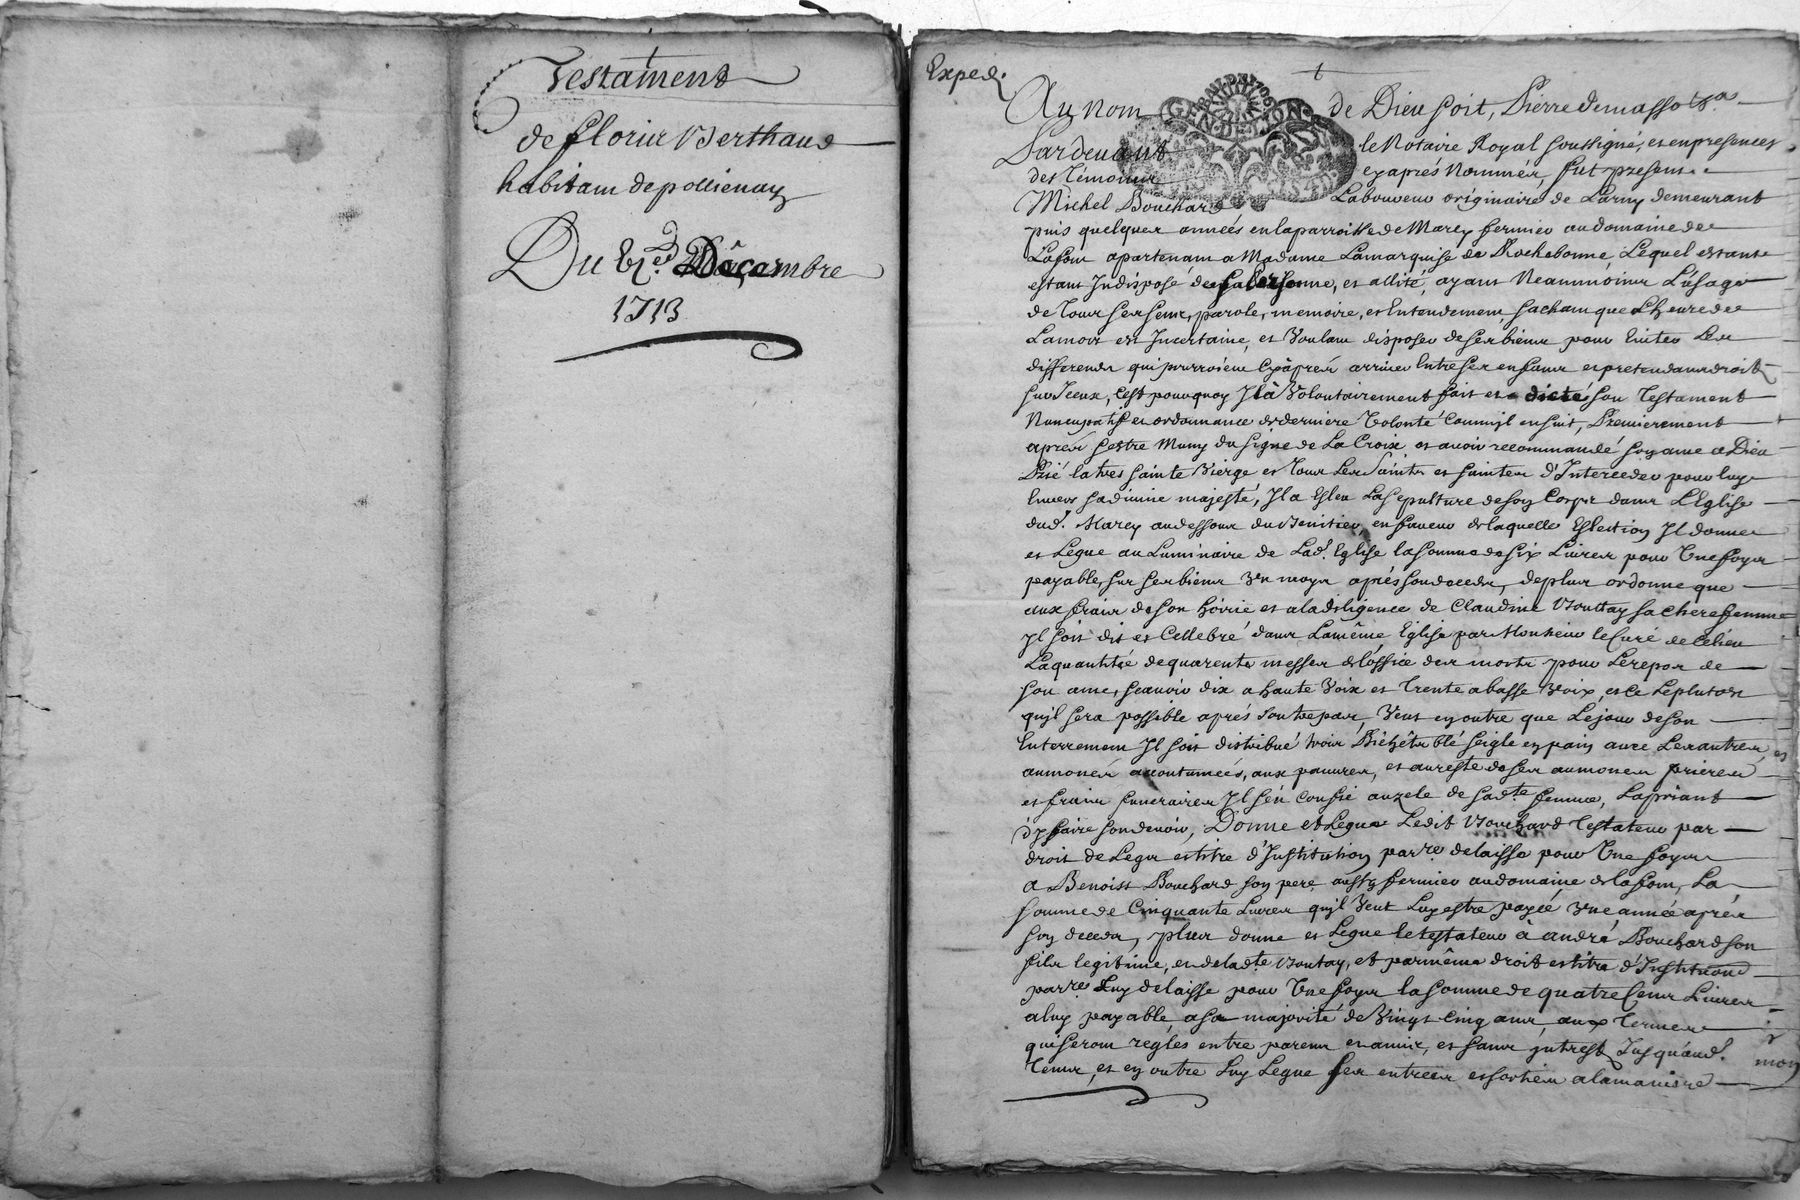 Testament
de fleurie Berthaud
habitam de pollienay
Du Décembre
1713
Exped.
Au nom de Dieu soit, Pierre demasso
Pardevant le Notaire Royal soussigné, et en presences
des Témoins cy aprés Nommés, fut present
Michel Bouchard Laboureur originaire de Larny demeurant
puis quelques années en la parroisse de Marcy fermier au domaine de
Lafont apartenam a Madame Lamarquise de Rochebonne, Lequel estant
estant Indisposé de sa Personne, et allité, ayant Neanmoins L'usage
de Tous ses sens, parole, memoire, et Entendement, sacham que L'heure de
Lamort est Incertaine, et Voulam disposer de ses biens pour Eviter Les
differends qui pourroient Cyàprés arriver Entre ses enfans et pretendans droit
sur Iceux, C'est pourquoy Il à Volontairement fait et dicté son Testament
Nuncupatif et ordonnance de derniere Volonté Comm'il ensuit, Premierement
aprés s'estre Muny du signe de La Croix et avoir recommandé son ame a Dieu
Prié la tres sainte Vierge et Tous Les Saints et saintes d'Interceder pour luy
Envers sa divine majesté, Il a Esleu La Sepulture de son Corps dans L'Eglise
dud. Marcy au dessous du Benitier en faveur de laquelle Eslection Il donne
et Legue au Luminaire de Lad. Eglise la somme de six Livres pour Une foys
payable, sur ses biens Un moys aprés son deceds, de plus ordonne que
aux frais de son hoirie et a la diligence de Claudine Bouttay sa chere femme
Il soit dit et Cellebré dans La même Eglise par Monsieur le Curé de Celieu
La quantité de quarente messes de l'office des morts pour Le repos de
son ame, scavoir dix a haute Voix et Trente a basse Voix, et Ce Leplutost
qu'il sera possible aprés son trepas, Veut en outre que Le jour de son
Enterrement Il soit distribué trois Bichets blé seigle en pain avec Les autres
aumones acoutumées, aux pauvres, et au reste de ses aumones prieres
et frais funeraires Il s'en confie au zele de sad.te femme, La priant
d'y faire son devoir, Donne et Legue Ledit Bouchard Testateur par
droit de Legs et titre d'Institution par.re delaisse pour Une foys
a Benoist Bouchard son pere aussy fermier au domaine de la font, La
somme de Cinquante Livres qu'il Veut Luy estre payée Une année aprés
son deceds, plus donne et Legue le testateur à andré Bouchard son
fils legitime, et de lad.te Boutay, et par même droit et titre d'Institution
par.re Luy delaisse pour Une foys la somme de quatre Cens Livres
a luy payable, a sa majorité de Vingt Cinq ans, aux Termes
qui seront reglés entre parens et amis, et sans intrest Jusqu'aud.
Tems, et en outre Luy Legue ses entrees et sorties a la maniere
mon